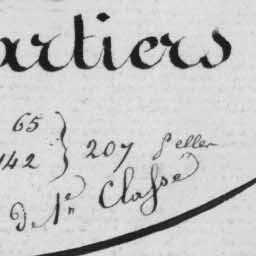 artiers
65
142 } 207 Seller
de 1re Classe